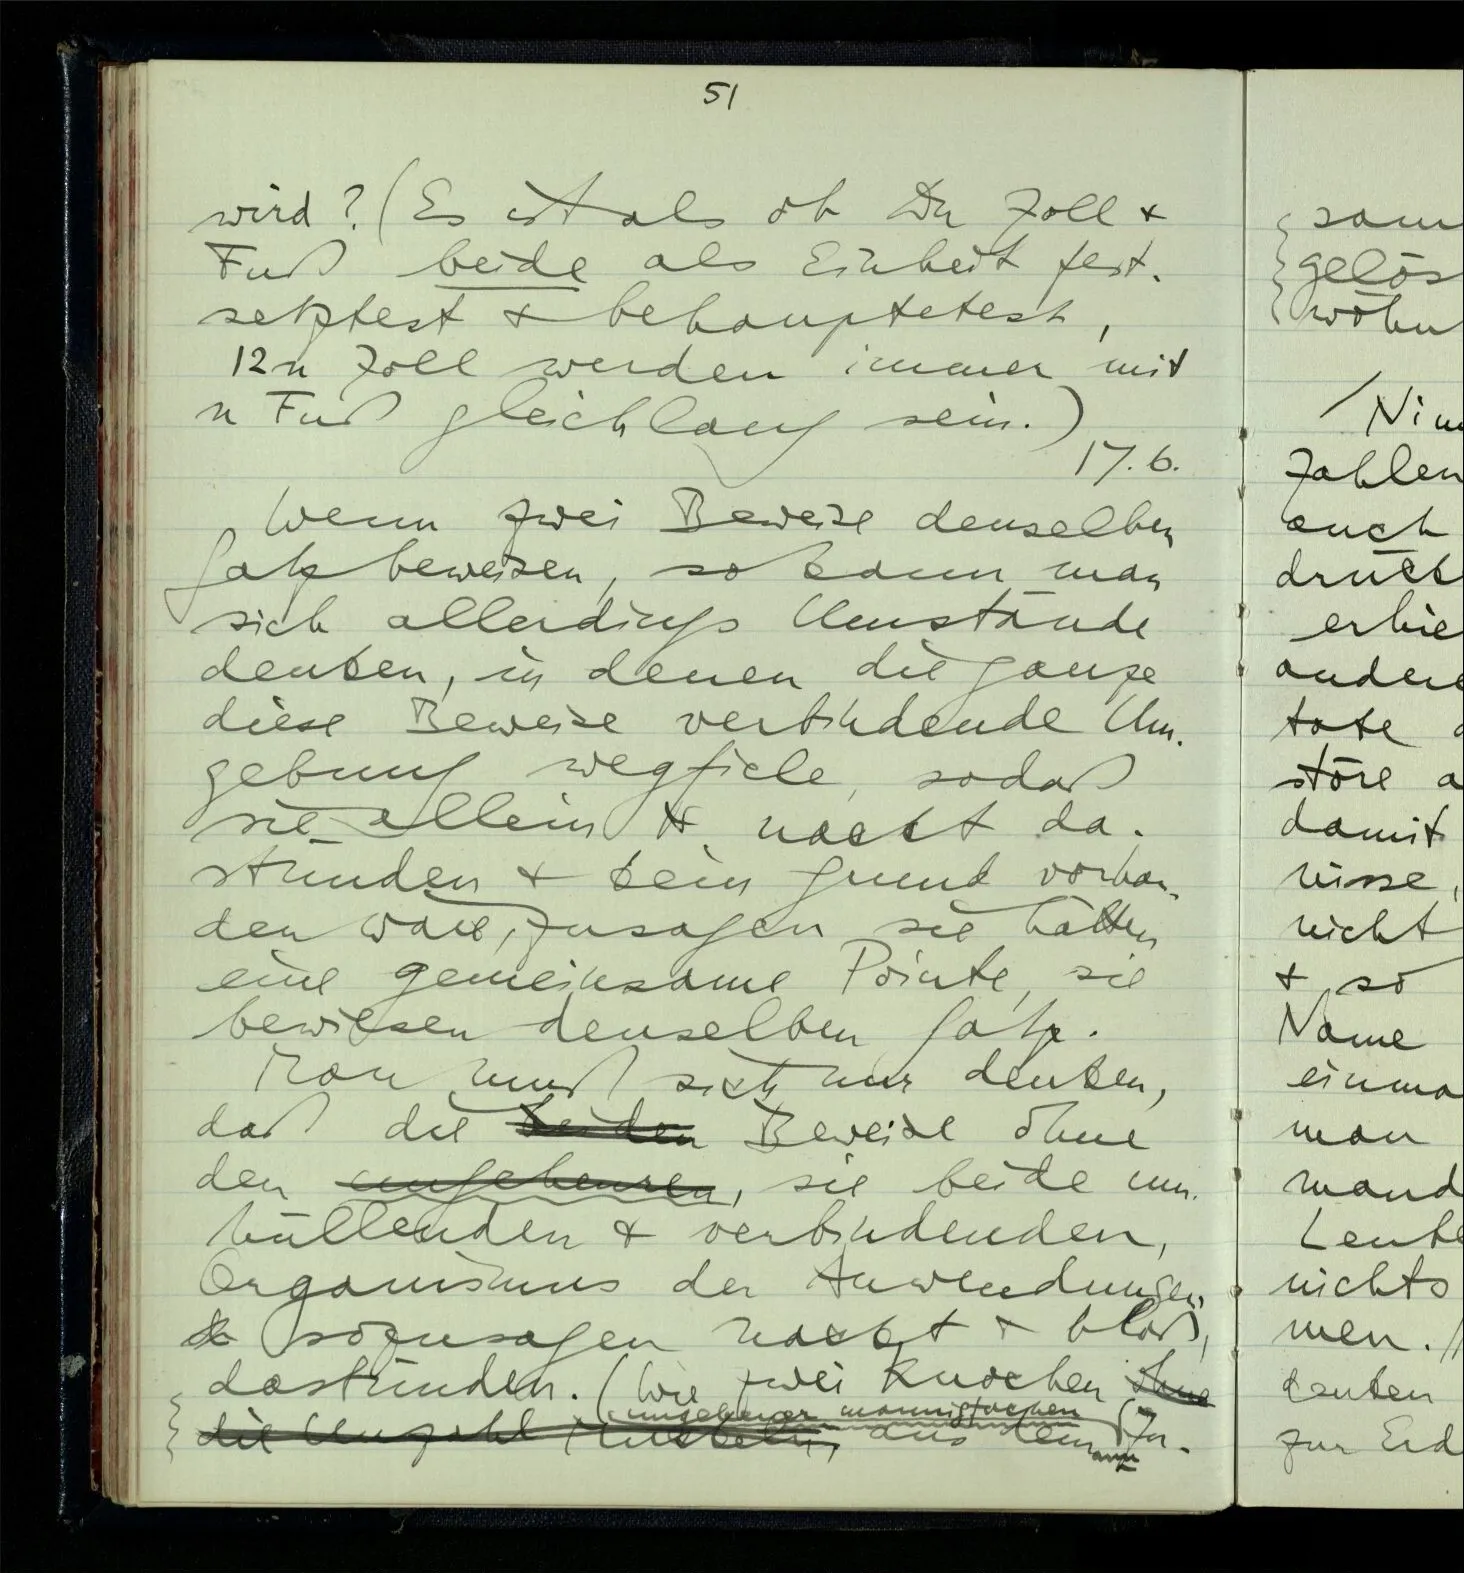 51
wird? (Es ist als ob Du Zoll &
Fuß beide als Einheit fest-
setztest & behauptetest,
12n Zoll werden immer mit
n Fuß gleichlang sein.)
17.6.
Wenn zwei Beweise denselben
Satz beweisen, so kann man
sich allerdings Umstände
denken, in denen die ganze
diese Beweise verbindende Um-
gebung wegfiele, sodaß
sie allein & nackt da-
stünden & kein Grund vorhan-
den wäre, zusagen sie hätten
eine gemeinsame Pointe, sie
bewiesen denselben Satz.
Man muß sich nur denken,
daß die beiden Beweise ohne
den ungeheuren, sie beide um-
hüllenden & verbindenden,
Organismus der Anwendungen
sozusagen nackt & bloß,
dastünden. (Wie zwei Knochen ohne
ungeheuer mannigfachen
die Unzahl Muskeln, aus dem (Zu-
sam
gelös
wöhn
Nim
Zahlen
auch
drückt
erhie
andere
tate
störe a
damit
nisse,
nicht
& so
Name
einma
man
mand
Leute
nichts
men. //
denken
zur Eid